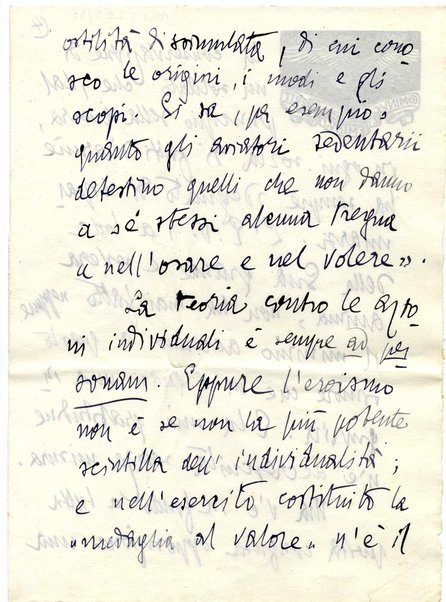 ostilità dissimulata, di cui cono
sco le origini, i modi e gli
scopi. Si sa, per esempio,
quanto gli aviatori sedentarii
detestino quelli che non danno
a sé stessi alcuna tregua
« nell'osare e nel volere».
La teoria contro le azio
ni individuali è sempre ad per
sonam. Eppure l'eroismo
non è se non la più potente
scintilla dell'individualità;
e nell'esercito costituito la
"medaglia al valore" n'è il